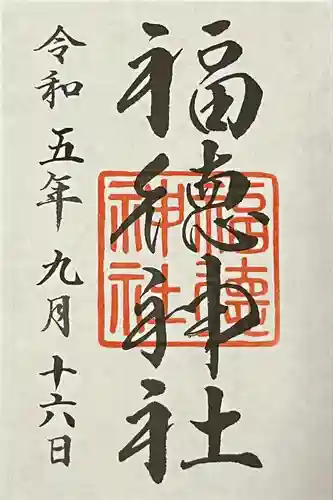 福徳神社
福徳神社
令和五年九月十六日